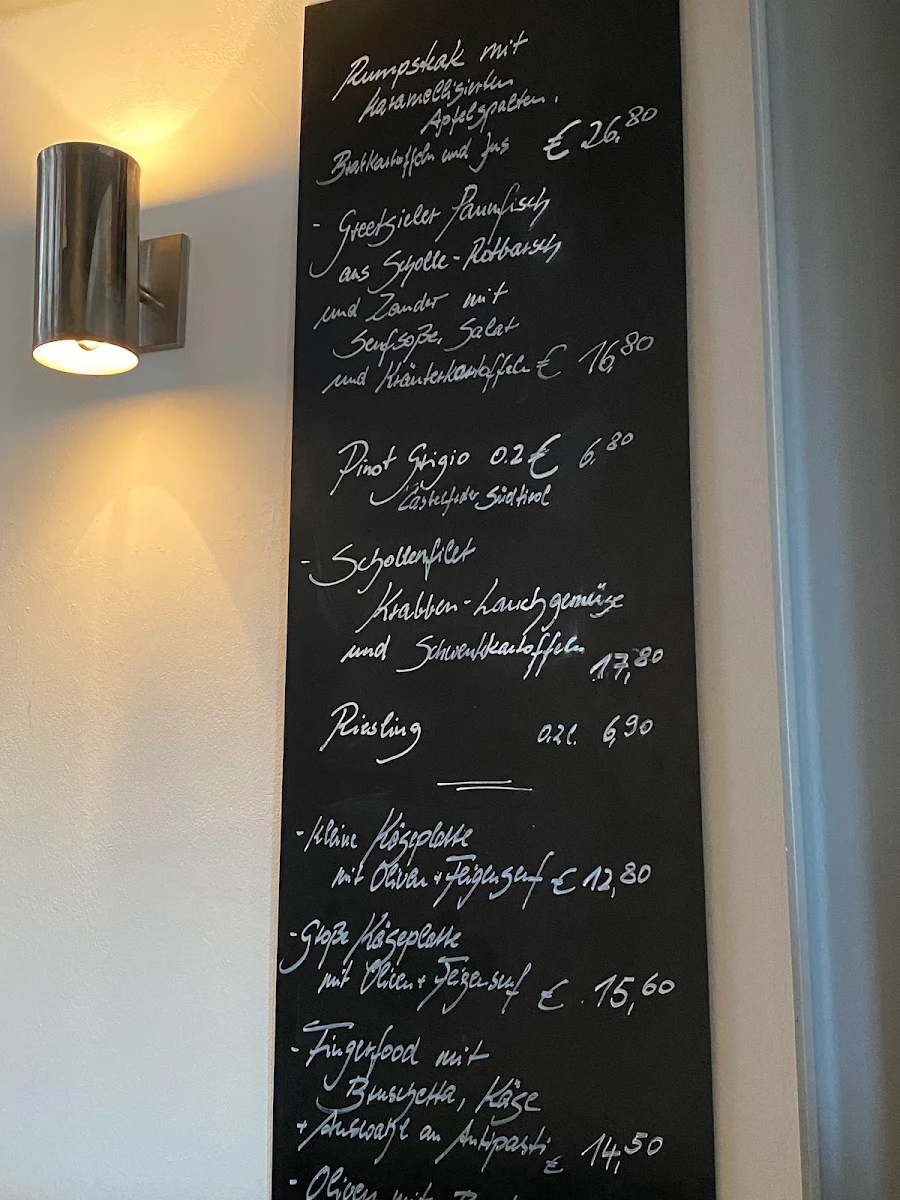 Rumpsteak mit
karamellisierten
Apfelspalten,
Bratkartoffeln und Jus € 26,80
- Greetsieler Pannfisch
aus Scholle-Rotbarsch
und Zander mit
Senfsoße, Salat
und Kräuterkartoffeln € 16,80
Pinot Grigio 0.2 € 6,80
Castelfeder Südtirol
- Schollenfilet
Krabben-Lauchgemüse
und Schwenkkartoffeln 17,80
Riesling 0.2l. 6,90
- Kleine Käseplatte
mit Oliven + Feigensenf € 12,80
- Große Käseplatte
mit Oliven + Feigensenf € 15,60
- Fingerfood mit
Bruschetta, Käse
+ Auswahl an Antipasti € 14,50
- Oliven mit